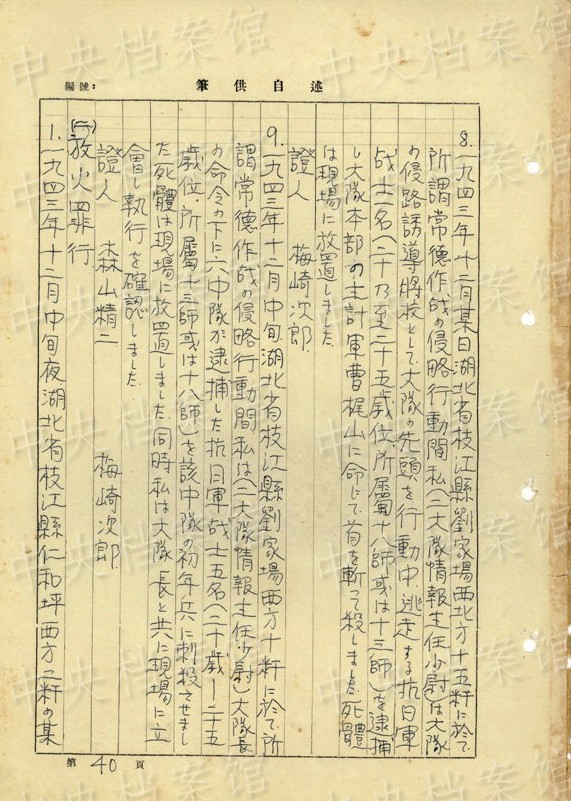 編號：
筆供自述
8.一九四三年十二月某日湖北省枝江縣劉家場西北方十五粁ニ於て
所謂常德作战の侵略行動間私(二大隊情報主任少尉は大隊
の侵路誘導將校として大隊の先頭を行動中、逃走する抗日軍
战士一名(二十乃至二十五歲位、所屬十八師或は十三師)を逮捕
し大隊本部の主計軍曹梶山に命じて首を斬って殺しました、死體
は現場に放置しました
證人　梅崎次郎
9.一九四三年十二月中旬、湖北省枝江縣劉家場西方十粁に於て、所
謂常德作战の侵略行動間私は(二大隊情報主任少尉)大隊長
の命令の下に六中隊が逮捕した抗日軍战士五名(二十歲－二十五
歲位、所屬十三師或は十八師)を該中隊の初年兵に刺殺させまし
た死體は現場に放置しました、同時私は大隊長と共に現場に立
會し執行を確認しました
證人　森山精二　梅崎次郎
(二)放火罪行
1.一九四三年十二月中旬夜湖北省枝江縣仁和坪西方二粁の某
第40頁
中央档案馆